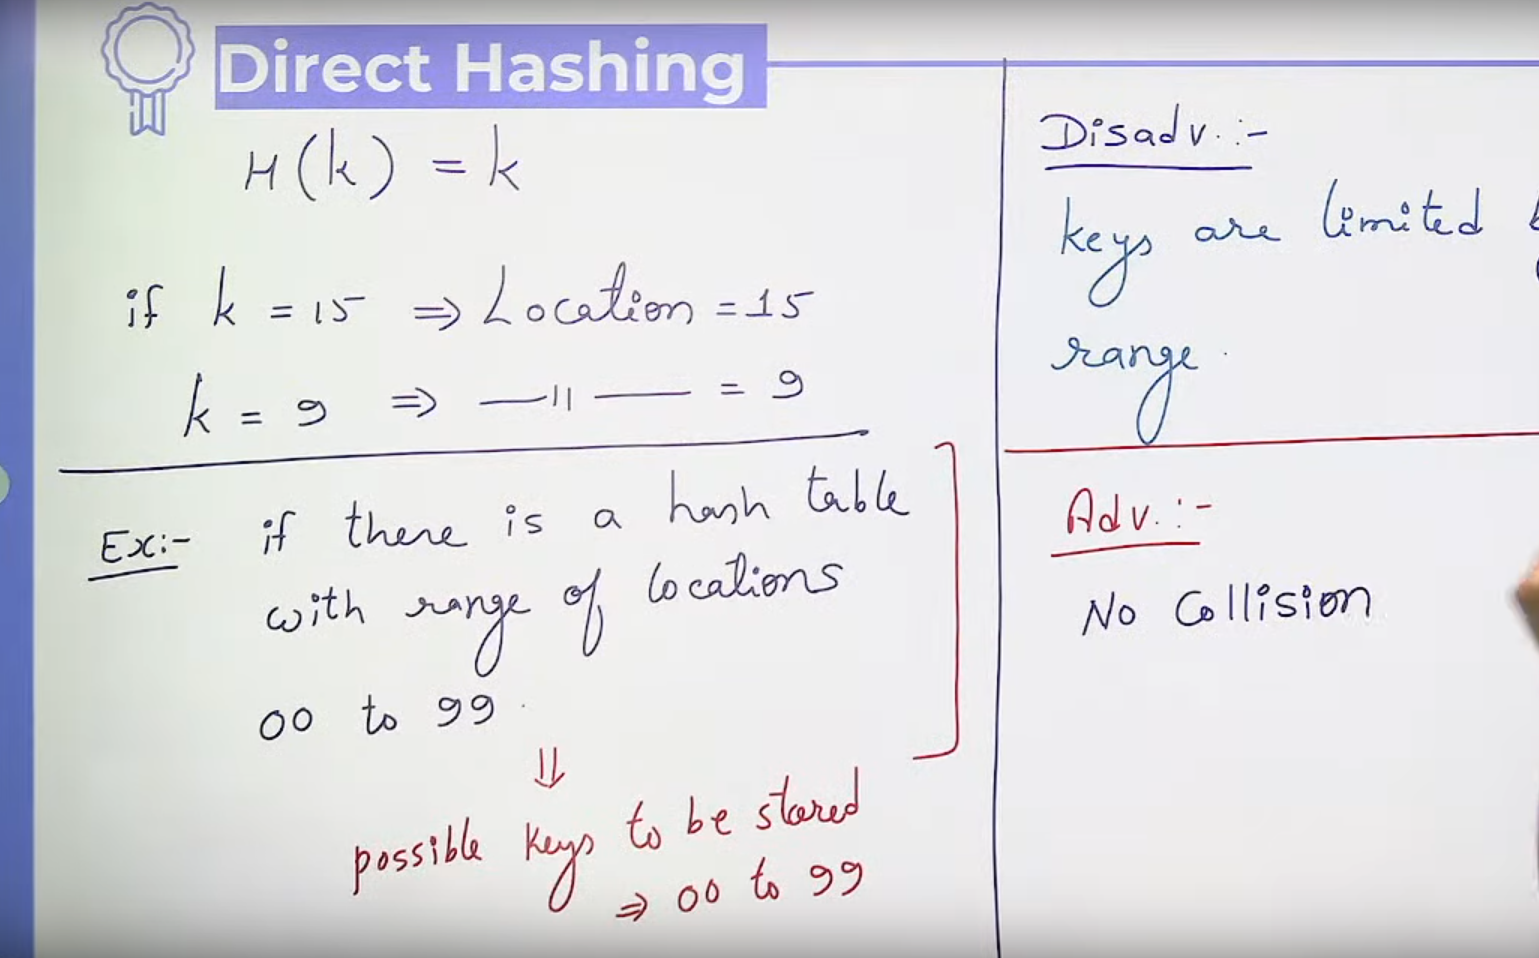 Direct Hashing
H(k) = k
if k = 15 ⇒ Location = 15
k = 9 ⇒ —11— = 9
Ex:- if there is a hash table
with range of locations
00 to 99.
⇓
possible keys to be stored
⇒ 00 to 99
Disadv.:-
keys are limited
range.
Adv.:-
No Collision